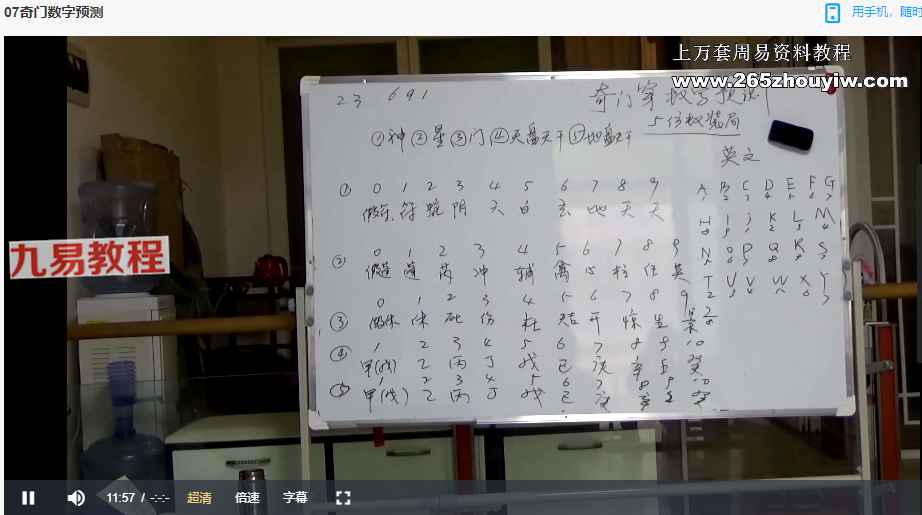 07奇门数字预测
用手机，随时
上万套周易资料教程
www.265zhouyiw.com
23 691
奇门穿数字预测
5位数装局
①神②星③门④天盘天干⑤地盘天干
英文
① 0 1 2 3 4 5 6 7 8 9
符 蛇 阴 六 白 玄 地 天 天
A B C D E F G
1 2 3 4 5 6 7
H I J K L M
N O P Q R S
T U V W X Y
② 0 1 2 3 4 5 6 7 8 9
蓬 芮 冲 辅 禽 心 柱 任 英
九易教程
0 1 2 3 4 5 6 7 8 9
③ 休 死 伤 杜 开 惊 生 景
④ 1 2 3 4 5 6 7 8 9 10
甲(戊) 乙 丙 丁 戊 己 庚 辛 壬 癸
⑤ 1 2 3 4 5 6 7 8 9 10
甲(戊) 乙 丙 丁 戊 己 辛 壬 癸
11:57 / -:-:-
超清
倍速
字幕